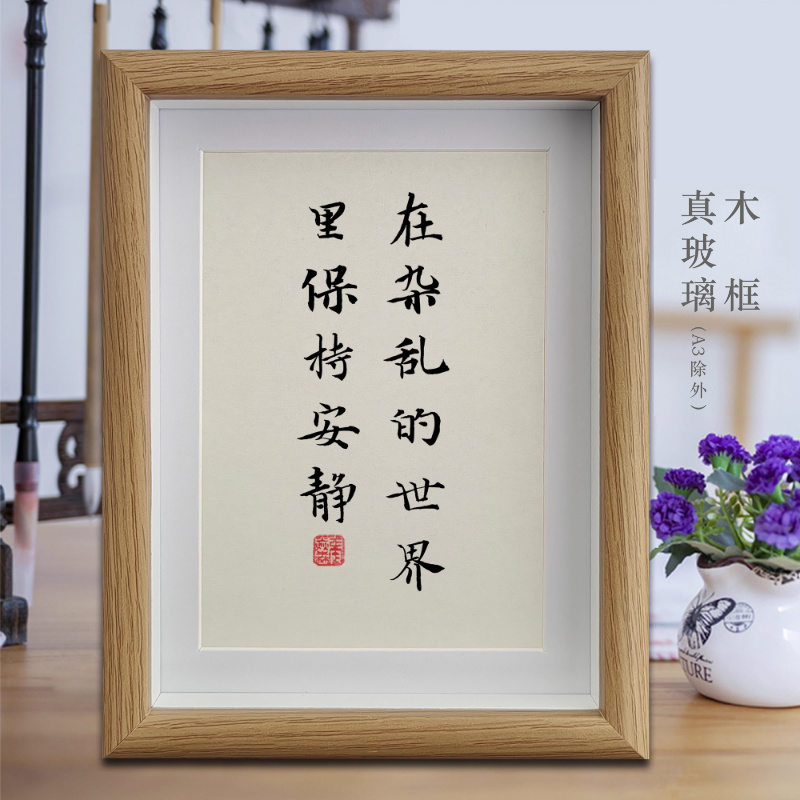 在杂乱的世界
里保持安静
木框
真玻璃(A3除外)
TURE